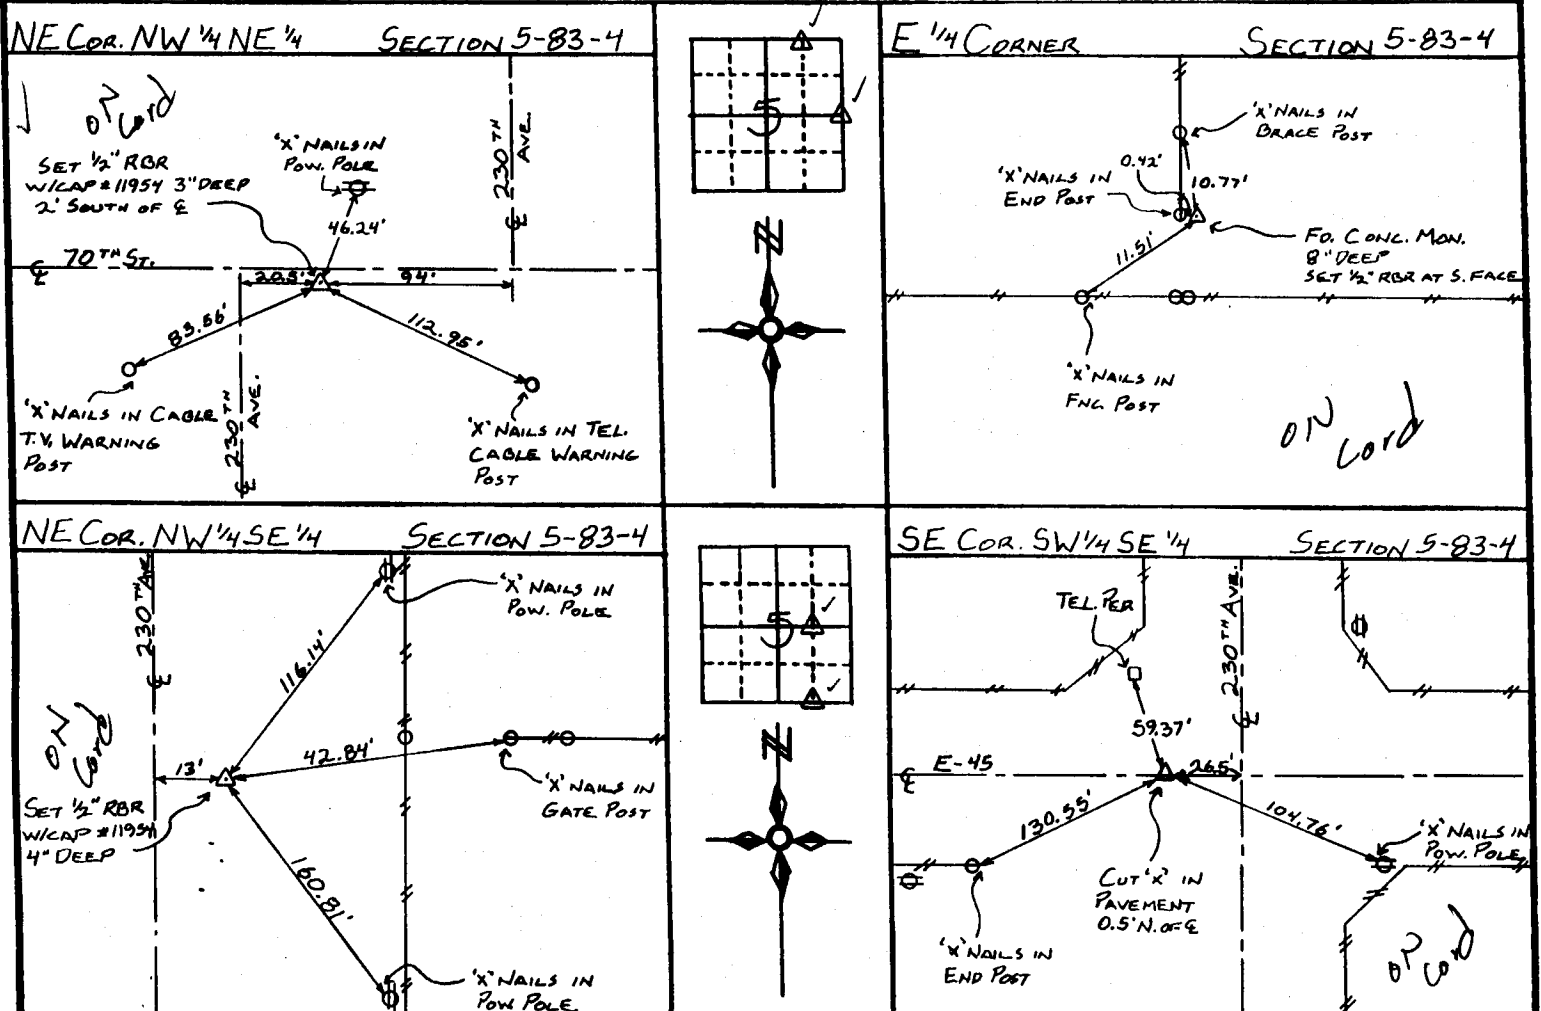 NE COR. NW 1/4 NE 1/4 SECTION 5-83-4
ON
Cord
SET 1/2" RBR
W/CAP #11954 3" DEEP
2' SOUTH OF ℄
'X' NAILS IN
POW. POLE
46.24'
230TH AVE. ℄
℄ 70TH ST.
20.5'
94'
83.56'
112.95'
'X' NAILS IN CABLE
T.V. WARNING
POST
230TH AVE. ℄
'X' NAILS IN TEL.
CABLE WARNING
POST
5
N
E 1/4 CORNER SECTION 5-83-4
'X' NAILS IN
BRACE POST
0.42'
'X' NAILS IN
END POST
10.77'
11.51'
FD. CONC. MON.
8" DEEP
SET 1/2" RBR AT S. FACE
'X' NAILS IN
FNC. POST
ON
Cord
NE COR. NW 1/4 SE 1/4 SECTION 5-83-4
230TH AVE ℄
'X' NAILS IN
POW. POLE
116.14'
ON
Cord
42.84'
13'
'X' NAILS IN
GATE POST
SET 1/2" RBR
W/CAP #11954
4" DEEP
160.81'
'X' NAILS IN
POW. POLE
5
N
SE COR. SW 1/4 SE 1/4 SECTION 5-83-4
TEL. PER
230TH AVE. ℄
59.37'
℄ E-45
26.5'
130.55'
104.76'
'X' NAILS IN
POW. POLE
CUT 'X' IN
PAVEMENT
0.5' N. OF ℄
'X' NAILS IN
END POST
ON
Cord